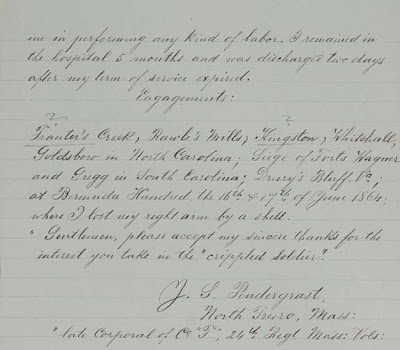 me in performing any kind of labor. I remained in
the hospital 5 months and was discharged two days
after my term of service expired.
Engagements:
? ?
Tranter's Creek, Rawle's Mills, Kingston, Whitehall,
Goldsboro in North Carolina; Siege of Forts Wagner
and Gregg in South Carolina; Drury's Bluff, Va.;
at Bermuda Hundred the 16th & 17th of June 1864:
where I lost my right arm by a shell.
" Gentlemen, please accept my sincere thanks for the
interest you take in the "crippled soldier".
J. S. Pendergrast,
North Truro, Mass:
"late Corporal of Co "F", 24th Regt Mass: Vols: